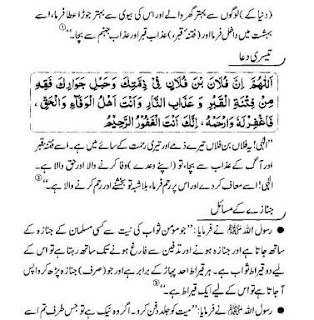 (دنیا کے) لوگوں سے بہتر گھر والے اور اس کی بیوی سے بہتر جوڑا عطا فرما، اسے
بہشت میں داخل فرما اور (فتنۂ قبر،) عذاب قبر اور عذاب جہنم سے بچا۔"
تیسری دعا
اَللّٰهُمَّ اِنَّ فُلَانَ بْنَ فُلَانٍ فِىْ ذِمَّتِكَ وَحَبْلِ جِوَارِكَ فَقِهِ
مِنْ فِتْنَةِ الْقَبْرِ وَ عَذَابِ النَّارِ وَاَنْتَ اَهْلُ الْوَفَاءِ وَالْحَقِّ،
فَاغْفِرْلَهٗ وَارْحَمْهُ، اِنَّكَ اَنْتَ الْغَفُوْرُ الرَّحِيْمُ
"الٰہی! یہ فلاں بن فلاں تیرے ذمے اور تیری رحمت کے سائے میں ہے۔ اسے فتنۂ قبر
اور آگ کے عذاب سے بچا، تو (اپنے وعدے) وفا کرنے والا اور حق والا ہے۔
الٰہی! اسے معاف کر دے اور اس پر رحم فرما، بلاشبہ تو بخشنے اور رحم کرنے والا ہے۔"
جنازے کے مسائل
رسول اللہ ﷺ نے فرمایا: "جو مومن ثواب کی نیت سے کسی مسلمان کے جنازہ کے
ساتھ جاتا ہے اور جنازہ ہونے اور تدفین سے فارغ ہونے تک ساتھ رہتا ہے تو اس کے
لیے دو قیراط ثواب ہے۔ ہر قیراط احد پہاڑ کے برابر ہے اور جو (صرف) جنازہ پڑھ کر واپس
آ جاتا ہے تو اس کے لیے ایک قیراط ہے۔"
رسول اللہ ﷺ نے فرمایا: "میت کو جلد دفن کرو۔ اگر وہ نیک ہے تو جس طرف تم اسے